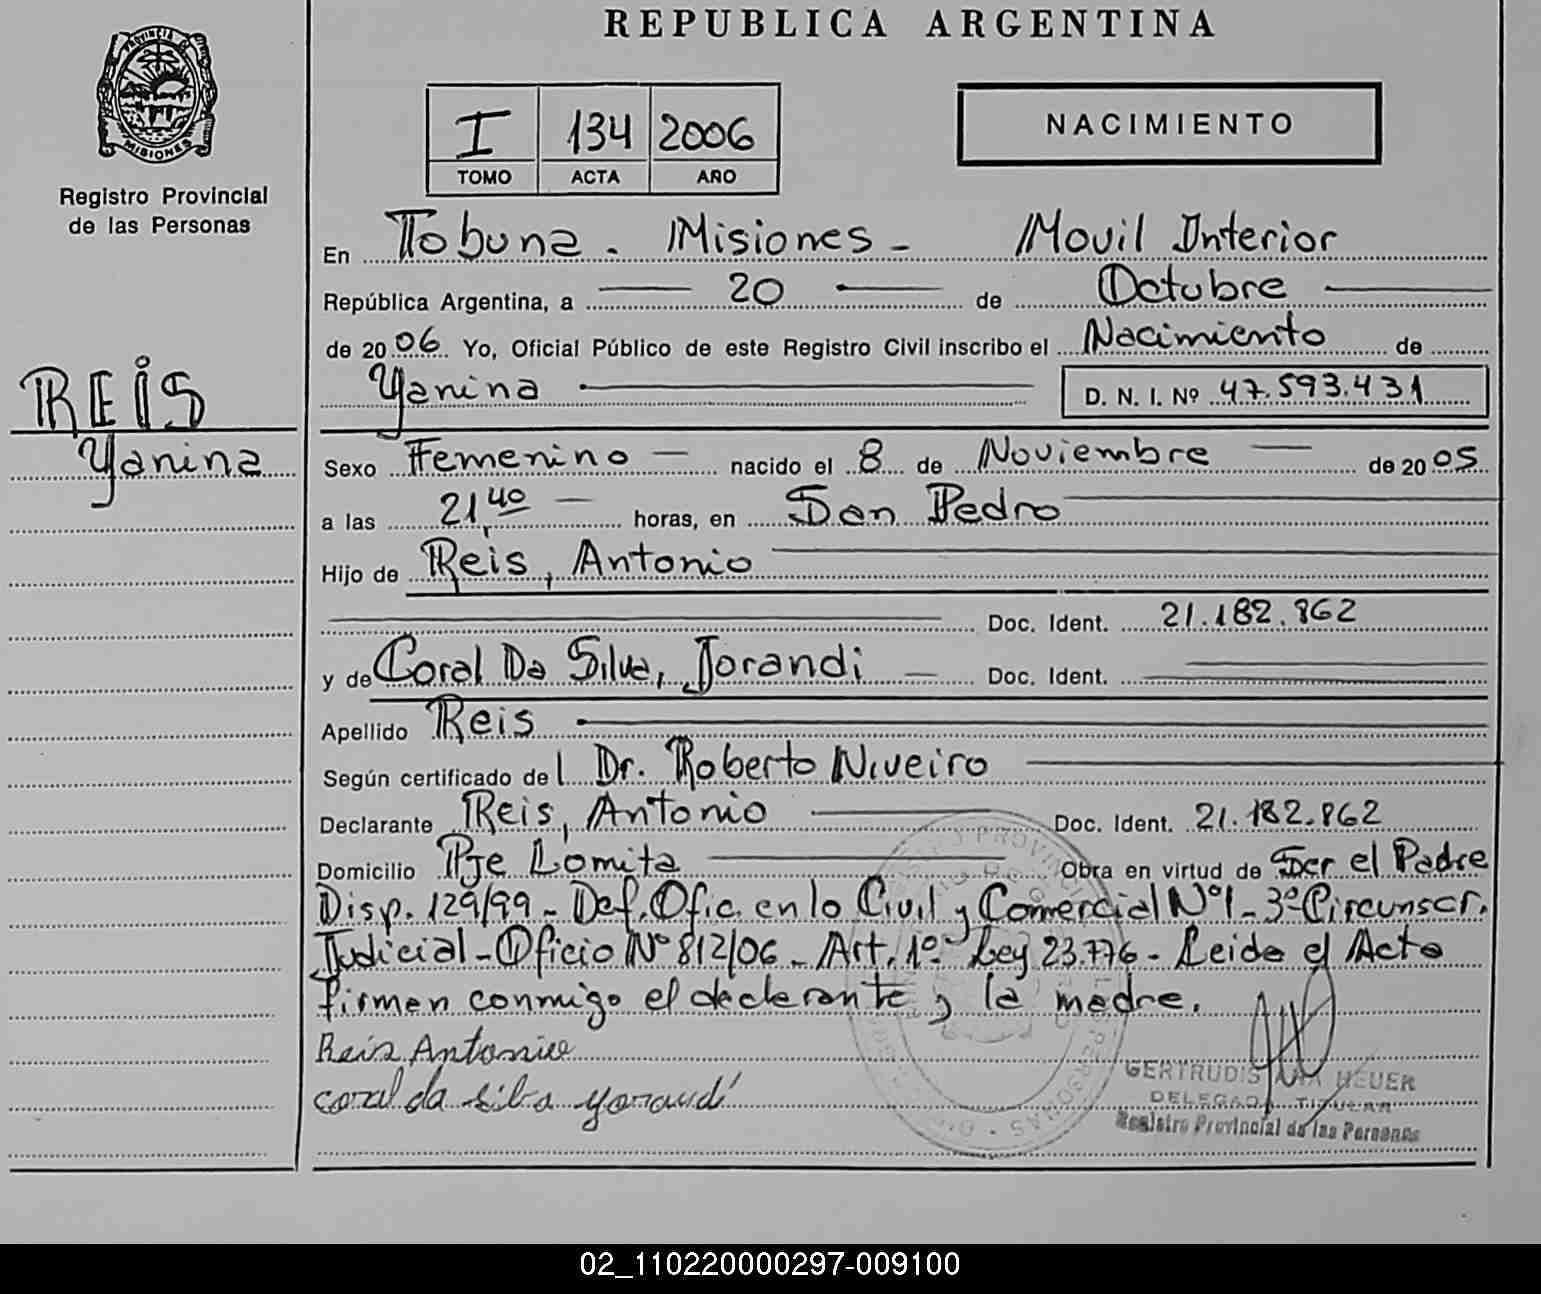 REPUBLICA ARGENTINA
PROVINCIA DE
MISIONES
Registro Provincial
de las Personas
I 134 2006
TOMO ACTA AÑO
NACIMIENTO
En Tobuna - Misiones - Movil Interior
República Argentina, a 20 de Octubre
de 20 06 Yo, Oficial Público de este Registro Civil inscribo el Nacimiento de
Yanina D. N. I. Nº 47.593.431
REIS
Yanina
Sexo Femenino nacido el 8 de Noviembre de 20 05
a las 21,40 horas, en San Pedro
Hijo de Reis, Antonio
Doc. Ident. 21.182.862
y de Coral Da Silva, Jorandi Doc. Ident.
Apellido Reis
Según certificado del Dr. Roberto Niveiro
Declarante Reis, Antonio Doc. Ident. 21.182.862
Domicilio Pje Lomita Obra en virtud de Ser el Padre
Disp. 129/99 - Def. Ofic. en lo Civil y Comercial Nº1 - 3º Circunscr.
Judicial - Oficio Nº 812/06 - Art. 1º Ley 23.776 - Leida el Acta
firman conmigo el declarante y la madre.
Reis Antonio
coral da silva yorandi
GERTRUDIS ANA HEUER
DELEGADA TITULAR
Registro Provincial de las Personas
02_110220000297-009100